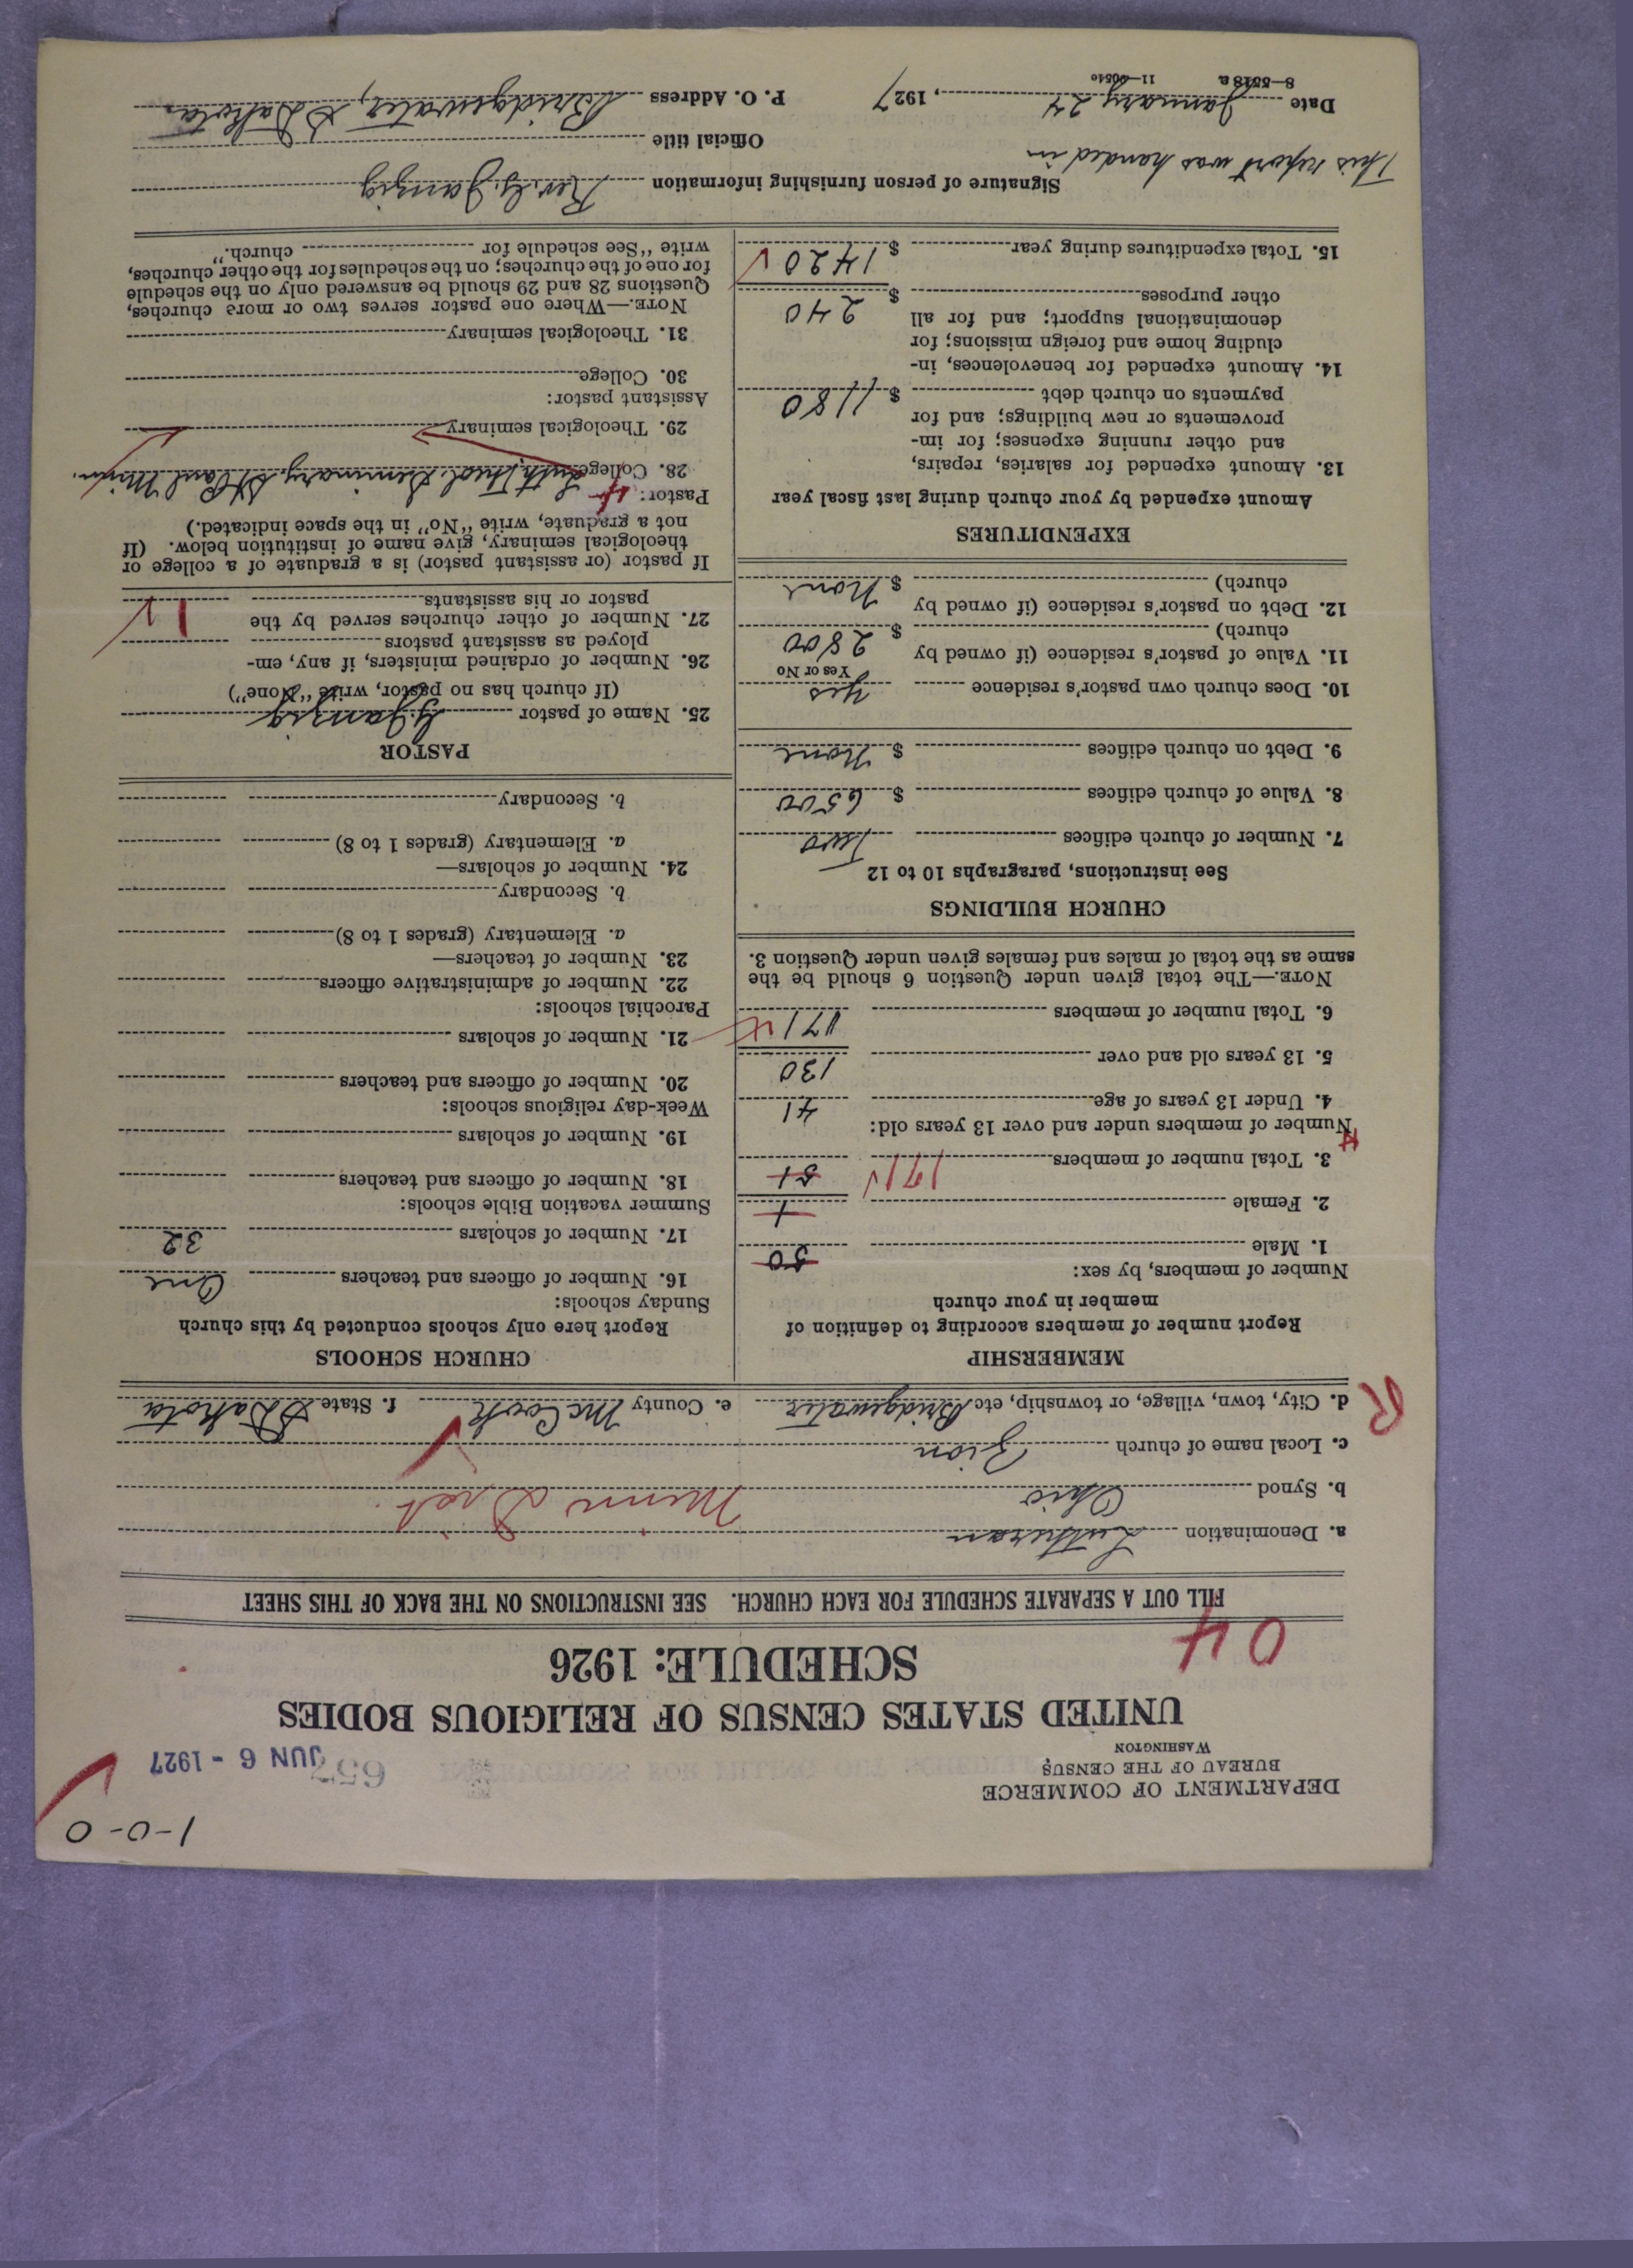 1-0-0
DEPARTMENT OF COMMERCE
BUREAU OF THE CENSUS
WASHINGTON
657
JUN 6 - 1927
UNITED STATES CENSUS OF RELIGIOUS BODIES
SCHEDULE: 1926
04
FILL OUT A SEPARATE SCHEDULE FOR EACH CHURCH. SEE INSTRUCTIONS ON THE BACK OF THIS SHEET
a. Denomination Lutheran
b. Synod Ohio Minn Dist.
c. Local name of church Zion
R
d. City, town, village, or township, etc Bridgewater e. County McCook f. State S Dakota
MEMBERSHIP
Report number of members according to definition of
member in your church
Number of members, by sex:
1. Male 50
2. Female 1
3. Total number of members 171 51
Number of members under and over 13 years old:
4. Under 13 years of age 41
5. 13 years old and over 130
6. Total number of members 171
NOTE.—The total given under Question 6 should be the
same as the total of males and females given under Question 3.
CHURCH BUILDINGS
See instructions, paragraphs 10 to 12
7. Number of church edifices Two
8. Value of church edifices $ 6500
9. Debt on church edifices $ None
10. Does church own pastor's residence yes
Yes or No
11. Value of pastor's residence (if owned by
church) $ 2800
12. Debt on pastor's residence (if owned by
church) $ None
EXPENDITURES
Amount expended by your church during last fiscal year
13. Amount expended for salaries, repairs,
and other running expenses; for im-
provements or new buildings; and for
payments on church debt $ 1180
14. Amount expended for benevolences, in-
cluding home and foreign missions; for
denominational support; and for all
other purposes $ 240
15. Total expenditures during year $ 1420
CHURCH SCHOOLS
Report here only schools conducted by this church
Sunday schools:
16. Number of officers and teachers One
17. Number of scholars 32
Summer vacation Bible schools:
18. Number of officers and teachers
19. Number of scholars
Week-day religious schools:
20. Number of officers and teachers
21. Number of scholars
Parochial schools:
22. Number of administrative officers
23. Number of teachers—
a. Elementary (grades 1 to 8)
b. Secondary
24. Number of scholars—
a. Elementary (grades 1 to 8)
b. Secondary
PASTOR
25. Name of pastor G. Janzig
(If church has no pastor, write "None")
26. Number of ordained ministers, if any, em-
ployed as assistant pastors
27. Number of other churches served by the
pastor or his assistants 1
If pastor (or assistant pastor) is a graduate of a college or
theological seminary, give name of institution below. (If
not a graduate, write "No" in the space indicated.)
Pastor:
28. College Luth. Theol. Seminary, St Paul Minn.
29. Theological seminary
Assistant pastor:
30. College
31. Theological seminary
NOTE.—Where one pastor serves two or more churches,
Questions 28 and 29 should be answered only on the schedule
for one of the churches; on the schedules for the other churches,
write "See schedule for church."
Signature of person furnishing information Rev. G. Janzig
This report was handed in
Official title
Date January 24, 1927 P. O. Address Bridgewater, S Dakota.
8—5518a 11—